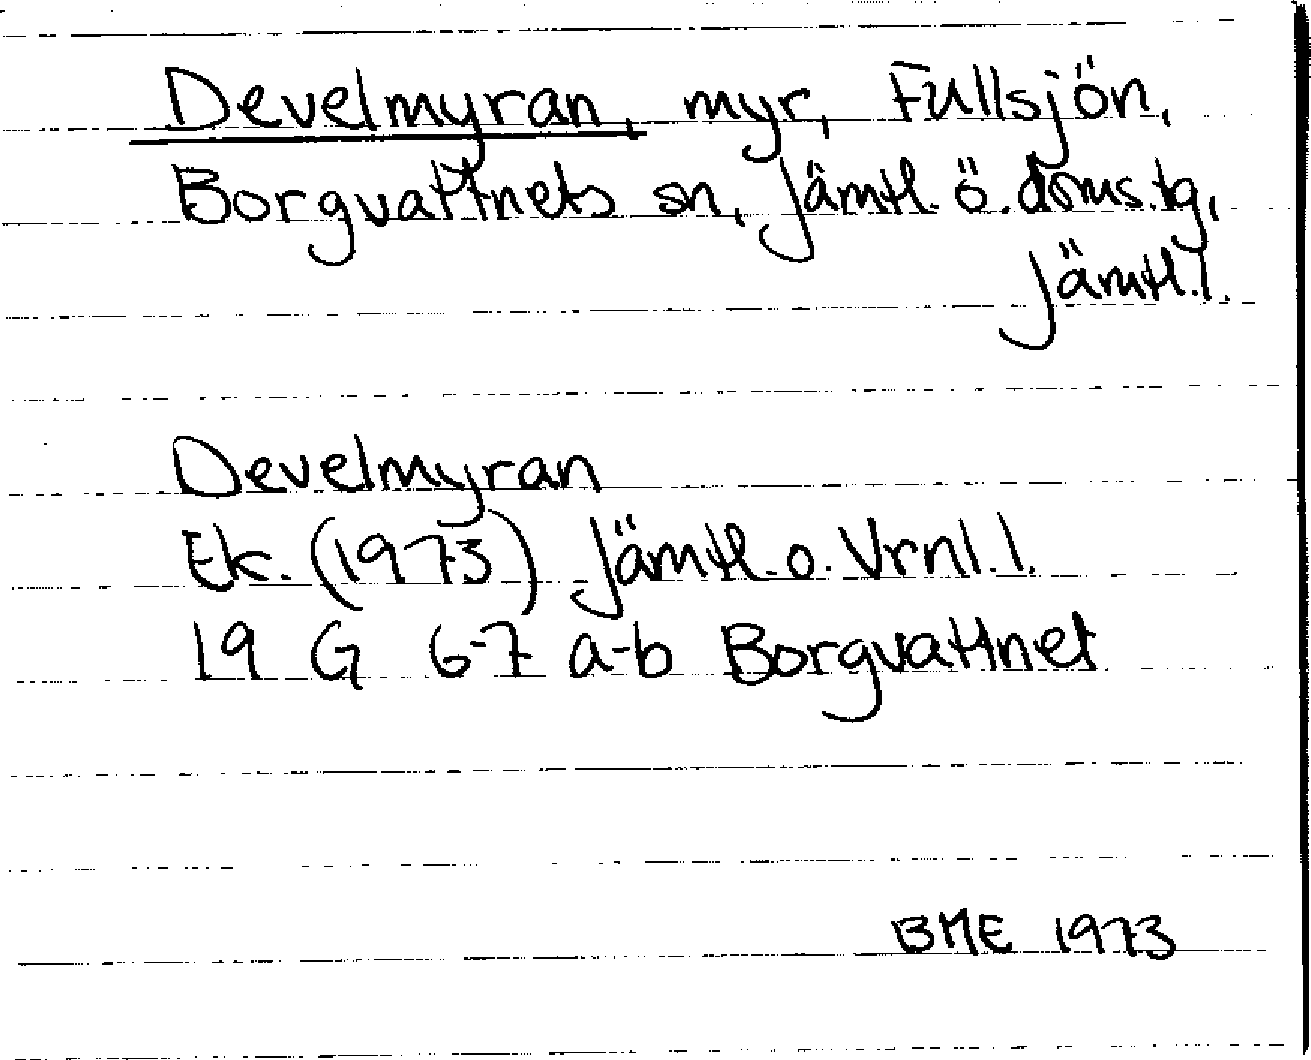 Develmyran, myr, Fullsjön,
Borgvattnets sn, Jämtl. ö. doms.tg,
Jämtl. l.
Develmyran
Ek. (1973) Jämtl. o. Vrnl. l.
19 G 6-7 a-b Borgvattnet
BME 1973